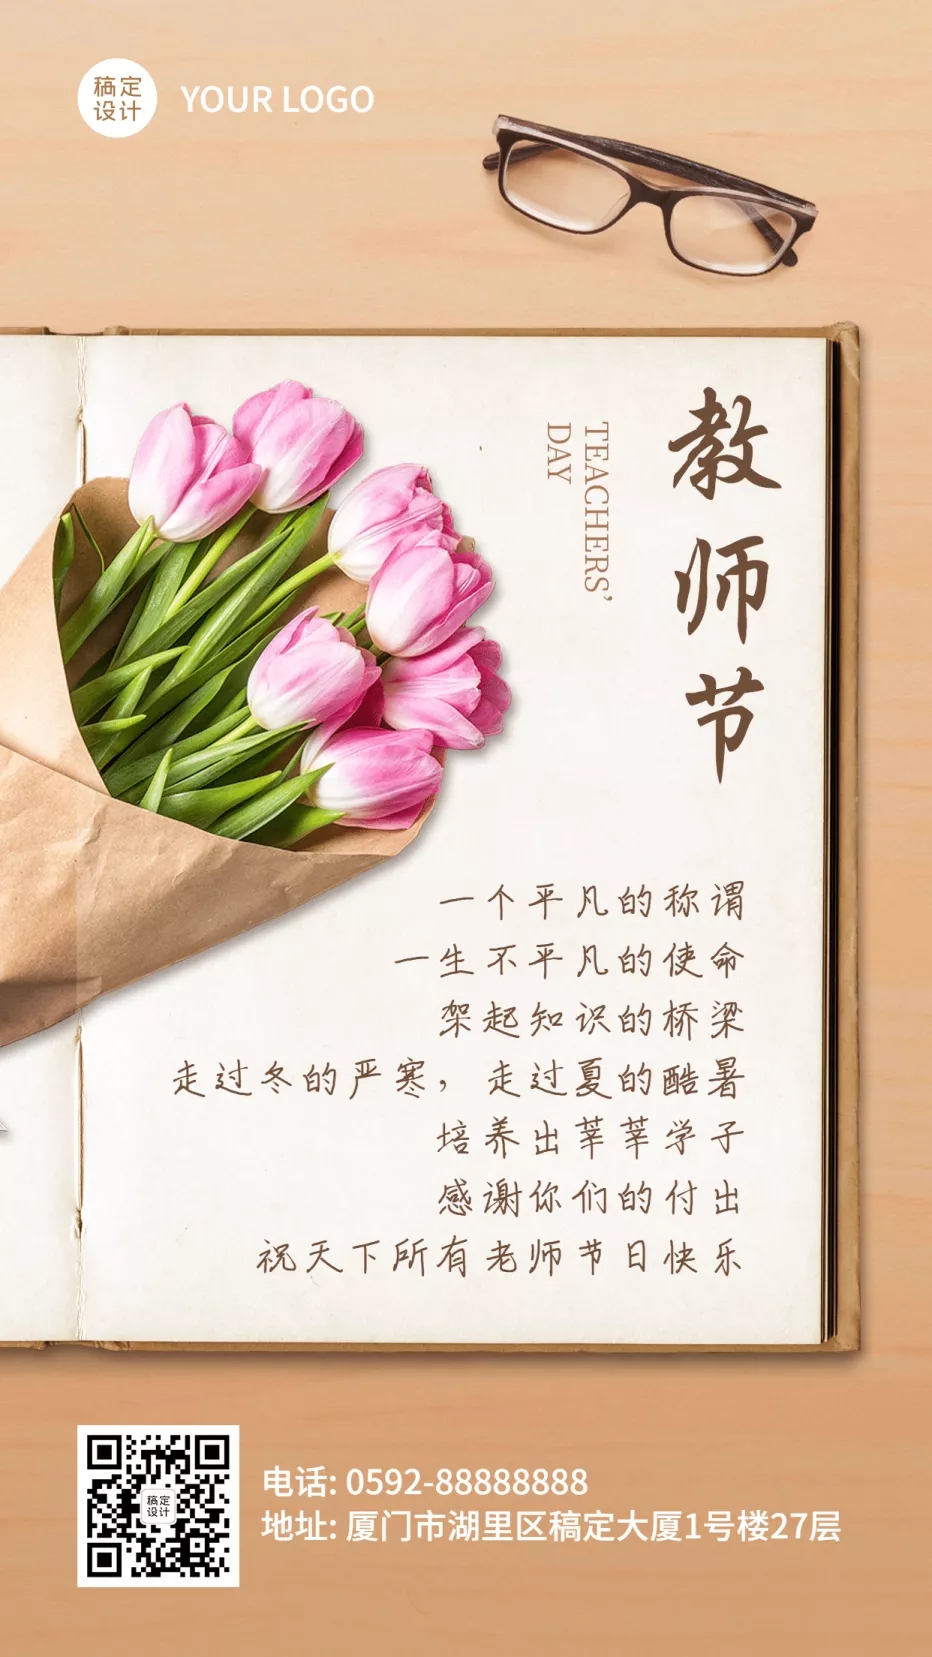 稿定
设计
YOUR LOGO
教师节
TEACHERS'
DAY
一个平凡的称谓
一生不平凡的使命
架起知识的桥梁
走过冬的严寒，走过夏的酷暑
培养出莘莘学子
感谢你们的付出
祝天下所有老师节日快乐
稿定
设计
电话: 0592-88888888
地址: 厦门市湖里区稿定大厦1号楼27层